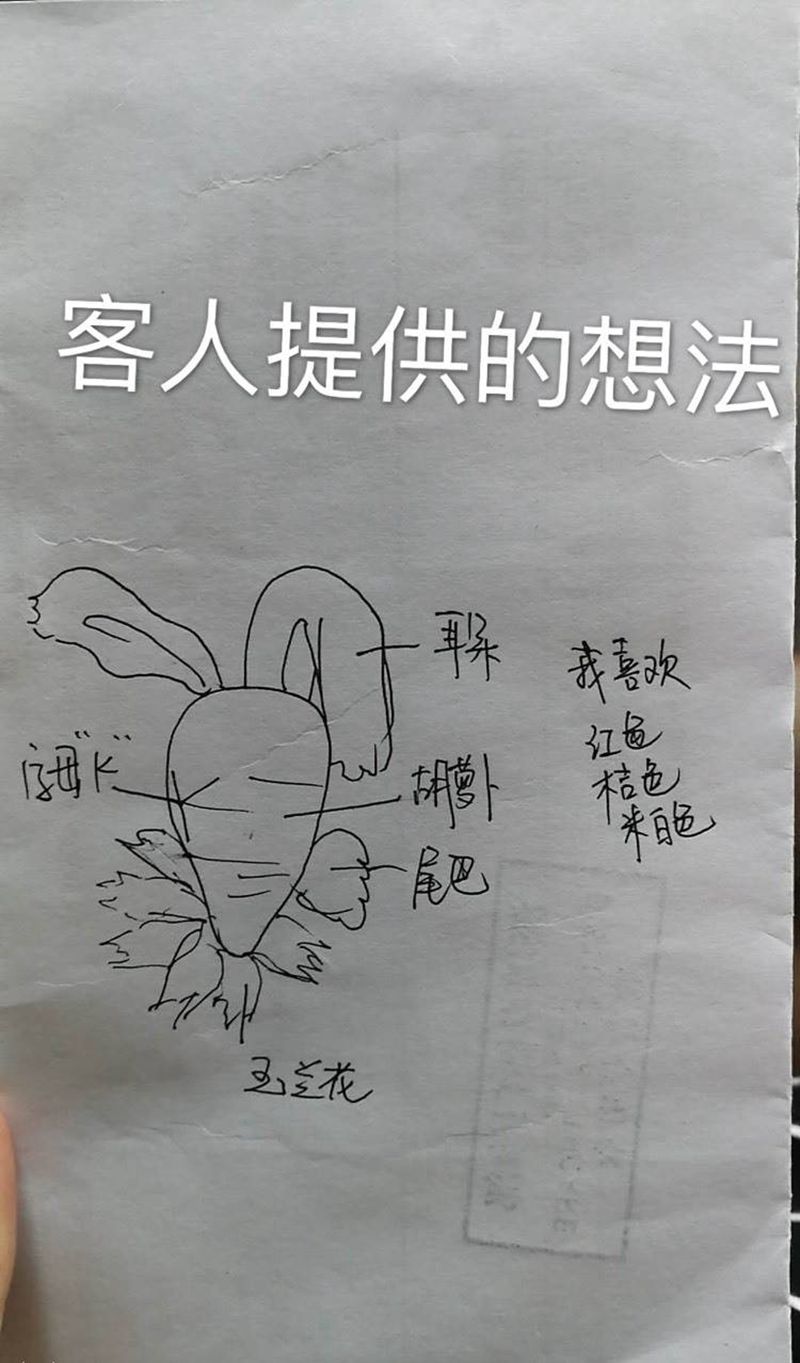 客人提供的想法
耳朵
我喜欢
红色
字母"K"
胡萝卜
桔色
米白色
尾巴
玉兰花